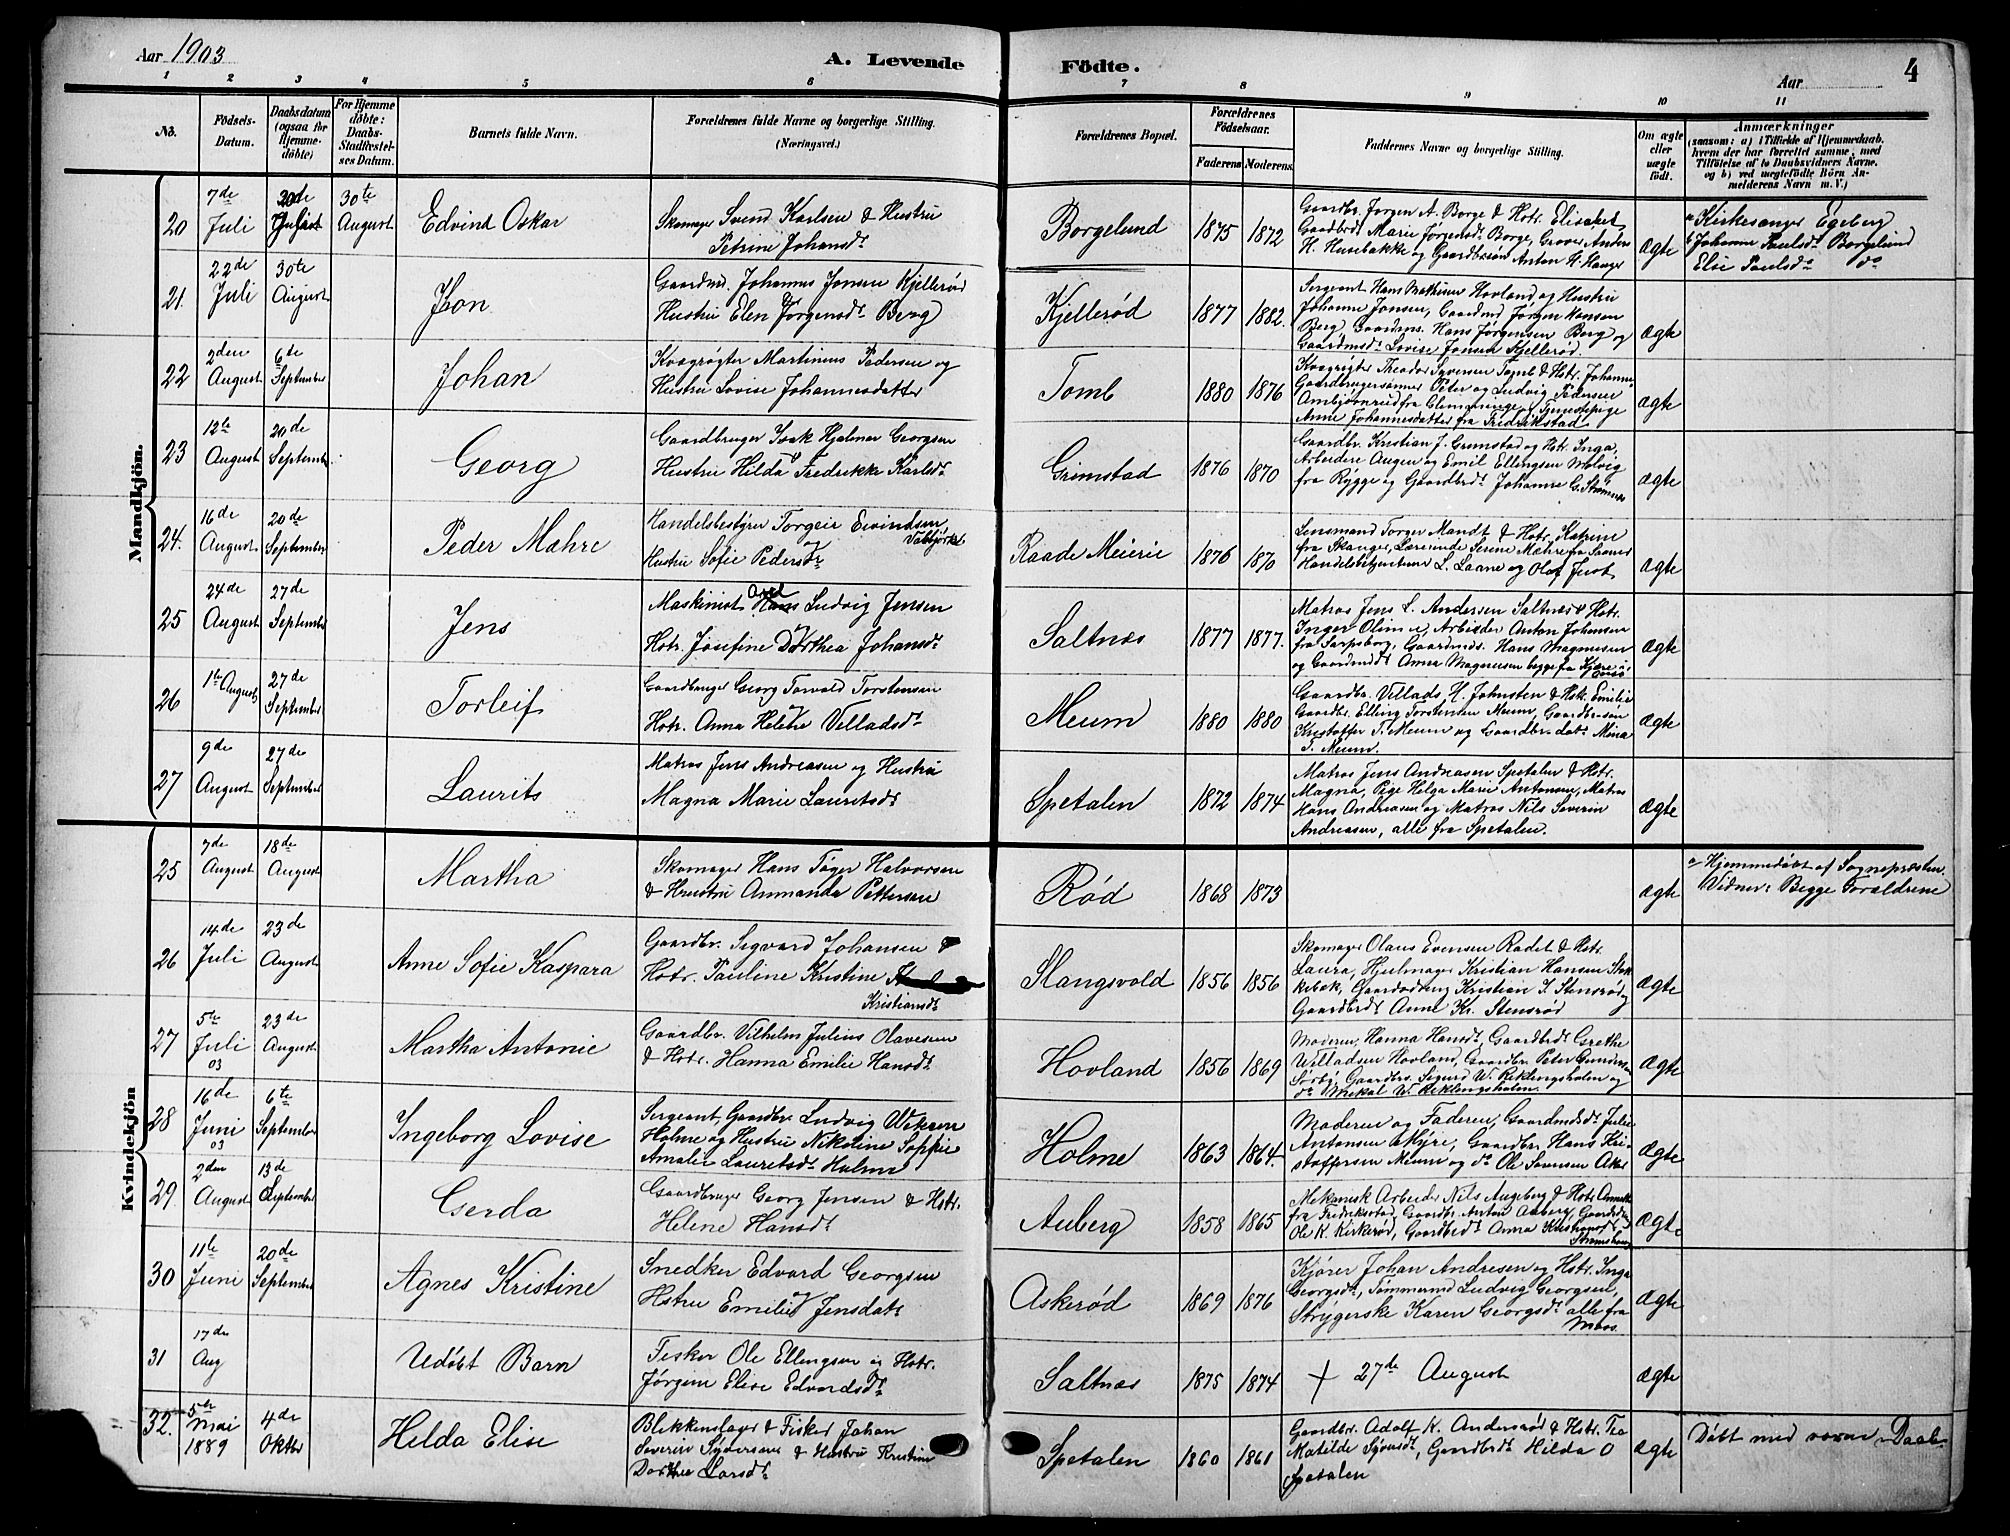 Aar 1903
A. Levende Födte.
Aar
4
1 2 3 4 5 6 7 8 9 10 11
No.
Födsels-Datum.
Daabsdatum (ogsaa for Hjemmedöbte)
For Hjemmedöbte: Daabs-Stadfæstelses Datum.
Barnets fulde Navn.
Forældrenes fulde Navne og borgerlige Stilling. (Næringsvei.)
Forældrenes Bopæl.
Forældrenes Födselsaar.
Faderens Moderens
Faddernes Navne og borgerlige Stilling.
Om ægte eller uægte födt.
Anmærkninger
(saasom: a) i Tilfælde af Hjemmedaab, hvem der har forrettet samme, med Tilföielse af to Daabsvidners Navne, og b) ved uægtefödte Börn Anmelderens Navn m. V.)
Mandkjön.
20 7de Juli 30te August Edvind Oskar
Skomager Svend Karlsen & Hustru
Petrine Johansdt
Borgelund 1875 1872
Gaardbr. Jørgen A. Borge & Hstr. Elisabet
Gaardbrd. Marie Jørgensdt Borge, Graver Anders
H. Husebakke og Gaardbrsøn Anton H. Hauger
Ægte
a Kirkesanger Egeberg
b Johanne Paulsdt Borgelund
Else Paulsdt do
21 22de Juli 30te August Jon
Gaardmd. Johannes Jonsen Kjellerød
Hustru Elen Jørgensdt Berg
Kjellerød 1877 1882.
Sergeant Hans Mathisen Hovland og Hustru
Johanne Jonsen, Gaardmd Jørgen Hansen
Berg, Gaardms. Hans Jørgensen Berg og
Gaardmsdt Lovise Jonsen Kjellerød.
Ægte
22 2den August 6te September Johan
Kvægrøgter Martinius Pedersen og
Hustru Lovise Johannesdatter
Tomb 1880 1876
Kvægrøgter Theodor Syversen Tomb & Hstr. Johanne
Gaardbrugersønner Peter og Ludvig Pedersen
Ambjørnrød fra Clemminge og Tjenestepige
Anne Johannesdatter fra Fredrikstad
Ægte
23 12te August 20de September Georg
Gaardbruger Isak Hjalmar Georgsen
Hustru Hilda Fredrikke Karlsdt
Grimstad 1876 1870
Gaardbr. Kristian J. Grimstad og Hstr. Inga,
Arbeidere August og Emil Ellingsen Molvig
fra Rygge og Gaardbrdt Johanne G. Strømnes
Ægte
24. 16de August 20de September Peder Mahre
Handelsbestyrer Torgeir Eivindsen
og
Hustru Sofie Pedersdt
Raade Meierie 1876 1870
Lensmand Torger Mandt & Hstr. Katrine
fra Skanger, Lærerinde Serene Mæhre fra
Handelsbetjentene L. Laane og Olaf Just
Ægte
25 24de August 27de September Jens
Maskinist Axel Ludvig Jensen
Hstr. Josefine Dorthea Johansdt
Saltnæs 1877 1877.
Matros Jens L. Andersen Saltnæs & Hstr.
Inger Oline, Arbeider Anton Johansen
fra Sarpsborg, Gaardmds. Hans Magnusen
og Gaardmdt Anna Magnusen begge fra Kjære i
Onsø
Ægte
26 1te August 27de September Torleif
Gaardbruger Georg Torvald Torstensen
Hstr. Anna Helene Velladsdt
Meum 1880 1880
Gaardbr. Villads H. Johnsten & Hstr. Emilie
Gaardbr. Elling Torstensen Meum, Gaardbr-søn
Kristoffer T. Meum og Gaardbr-datt Mina
T. Meum.
Ægte
27 9de August 27de September Laurits
Matros Jens Andreasen og Hustru
Magna Marie Lauritsdt
Spetalen 1872 1874
Matros Jens Andreasen Spetalen & Hstr.
Magna, Pige Helga Marie Antonsen, Matros
Hans Andreasen og Matros Nils Severin
Andreasen, alle fra Spetalen.
Ægte
Kvindekjön
25 7de August 18de August Martha
Skomager Hans Tøger Halvorsen
& Hustru Ammanda Pettersen
Rød 1868 1873
Ægte
a Hjemmedøbt af Sognepræsten.
Vidner: Begge Forældrene
26 14de Juli 23de August Anne Sofie Kaspara
Gaardbr. Sigvard Johansen &
Hstr. Pauline Kristine
Kristiansdt
Slangsvold 1856 1856
Skomager Olaus Evensen Radet & Hstr.
Laura, Hjulmager Kristian Hansen
Gaardbrdt Anne Kr. Stensrød
Ægte
27 5te Juli 03 23de August Martha Antonie
Gaardbr. Vilhelm Julius Olavesen
& Hstr. Hanna Emilie Hansdt
Hovland 1856 1869
Moderen, Hanna Hansdt, Gaardbrdt Grethe
Willadsen Hovland, Gaardbr. Peter Gundersen
Sørby, Gaardbrs. Sigurd W. Reklingsholm og
do Mikal W. Reklingsholm.
Ægte
28 16de Juni 03 6te September Ingeborg Lovise
Sergeant, Gaardbr. Ludvig Olsen
Holme og Hustru Nikoline Soffie
Amalie Lauretsdt Holme
Holme 1863 1864.
Moderen og Faderen, Gaardmdsdt Julie
Antonsen Myre, Gaardbr. Hans Kri-
stoffersen Meum og do Ole Sørensen Aker
Ægte
29 2den August 13de September Gerda
Gaardbruger Georg Jensen & Hstr.
Helene Hansdt
Auberg 1858 1865
Mekanisk Arbeider Nils Augeberg & Hstr. Annette
fra Fredrikstad, Gaardbr. Anton Auberg, Gaardbr.
Ole K. Kirkerød, Gaardbrdt Anna Kristiansdt
Strømshaug
Ægte
30 11te Juni 20de September Agnes Kristine
Snedker Edvard Georgsen
Hstru Emilie Jensdatt
Askerød 1869 1876
Kjører Johan Andresen og Hstr. Inga
Georgsdt, Tømmermd Ludvig Georgsen,
Strygerske Karen Georgsdt alle fra
Moss.
Ægte
31 17de Aug Udöbt Barn
Fisker Ole Ellingsen og Hstr.
Jørgine Elise Edvardsdt
Saltnæs 1875 1874
+ 27de August
Ægte
32. 5te Mai 1889 4de Oktbr Helda Elise
Blikkenslager & Fisker Johan
Severin Syversen & Hustru Kristine
Dorthea Larsdt
Spetalen 1860 1861
Gaardbr. Adolf K. Andersrød & Hstr. Tea
Matilde Syversdt, Gaardbrdt Hilda O
Spetalen
Ægte
Døbt med voxne Daab